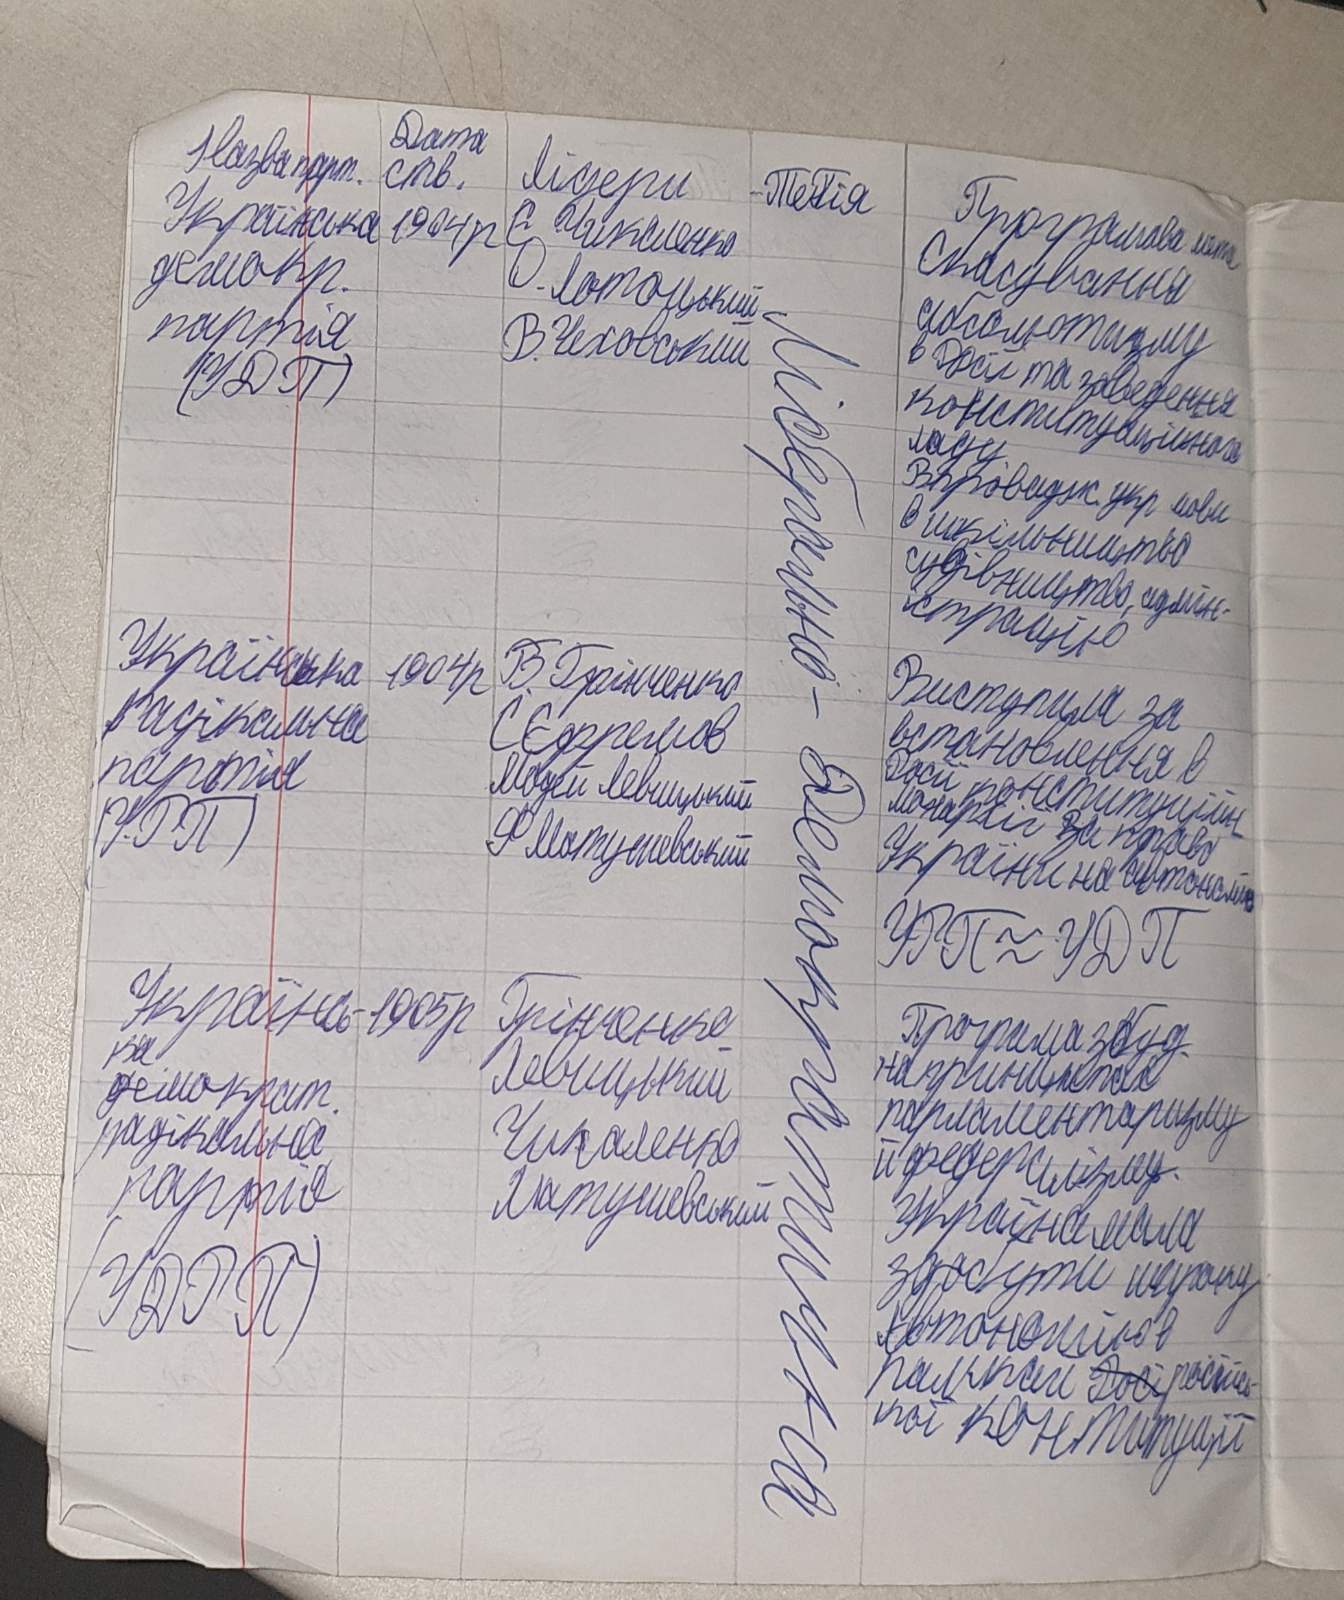 Назва парт.
Дата
ств.
Лідери
Течія
Програмова мета
Українська
демокр.
партія
(УДП)
1904р
Є. Чикаленко
О. Лотоцький
В. Чеховський
Скасування
абсолютизму
в Росії та заведення
конституційного
ладу
Впровадж. укр мови
в шкільництво
судівництво, адмін-
істрацію
Ліберально-демократична
Українська
радікальна
партія
(УРП)
1904р
Б. Грінченко
С. Єфремов
Модест Левицький
Ф Матушевський
Виступила за
встановлення в
Росії конституційн
монархії за право
України на автономію
УРП ≈ УДП
Українсь-
ка
демократ.
радікальна
партія
(УДРП)
1905р
Грінченко
Левицький
Чикаленко
Матушевський
Програма збуд.
на принципах
парламентаризму
й федералізму.
Україна мала
здобути широку
автономію в
рамках російсь-
кої конституції